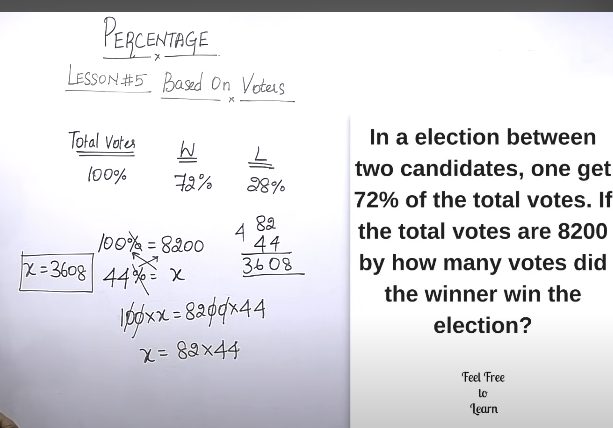 PERCENTAGE
x
LESSON #5 Based On Voters
x
Total Votes W L
100% 72% 28%
100% = 8200
44% = x
x = 3608
100 x x = 8200 x 44
x = 82 x 44
82
4 44
3608
In a election between
two candidates, one get
72% of the total votes. If
the total votes are 8200
by how many votes did
the winner win the
election?
Feel Free
to
Learn